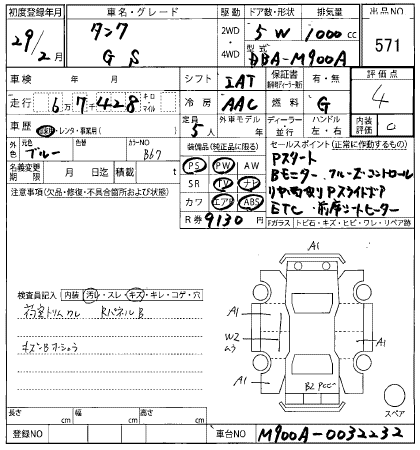 初度登録年月 車名・グレード 駆動 ドア数・形状 排気量 出品NO
29/2月 タンク GS 2WD 4WD 5 W 1000cc 571
型式 DBA-M900A
車検 年 月 シフト IAT 保証書 有・無 評価点 4
走行 6万7千428 キロ・マイル 冷房 AAC 燃料 G
車歴 自家用・レンタ・事業用( ) 定員 5人 外車モデル ディーラー・並行 ハンドル 左・右 内装評価 C
外色 元色 ブルー 色替 カラーNO B67 装備品(純正品に限る) セールスポイント(正常に作動するもの)
名義変更期限 月 日迄 積載 t PS PW AW Pスタート
注意事項(欠品・修復・不具合箇所および状態) SR TV ナビ Bモニター クルーズコントロール
カワ エアB ABS リヤ両側Pスライドドア
R券 9130円 ETC 前席シートヒーター
Fガラス トビ石・キズ・ヒビ・ワレ・リペア跡
検査員記入 内装 汚れ・スレ・キズ・キレ・コゲ・穴
荷室トリムワレ RパネルB
キズB
A1
A1
W2
A1
A1
B2
スペア
長さ cm 幅 cm 高さ cm
登録NO 車台NO M900A-0032232